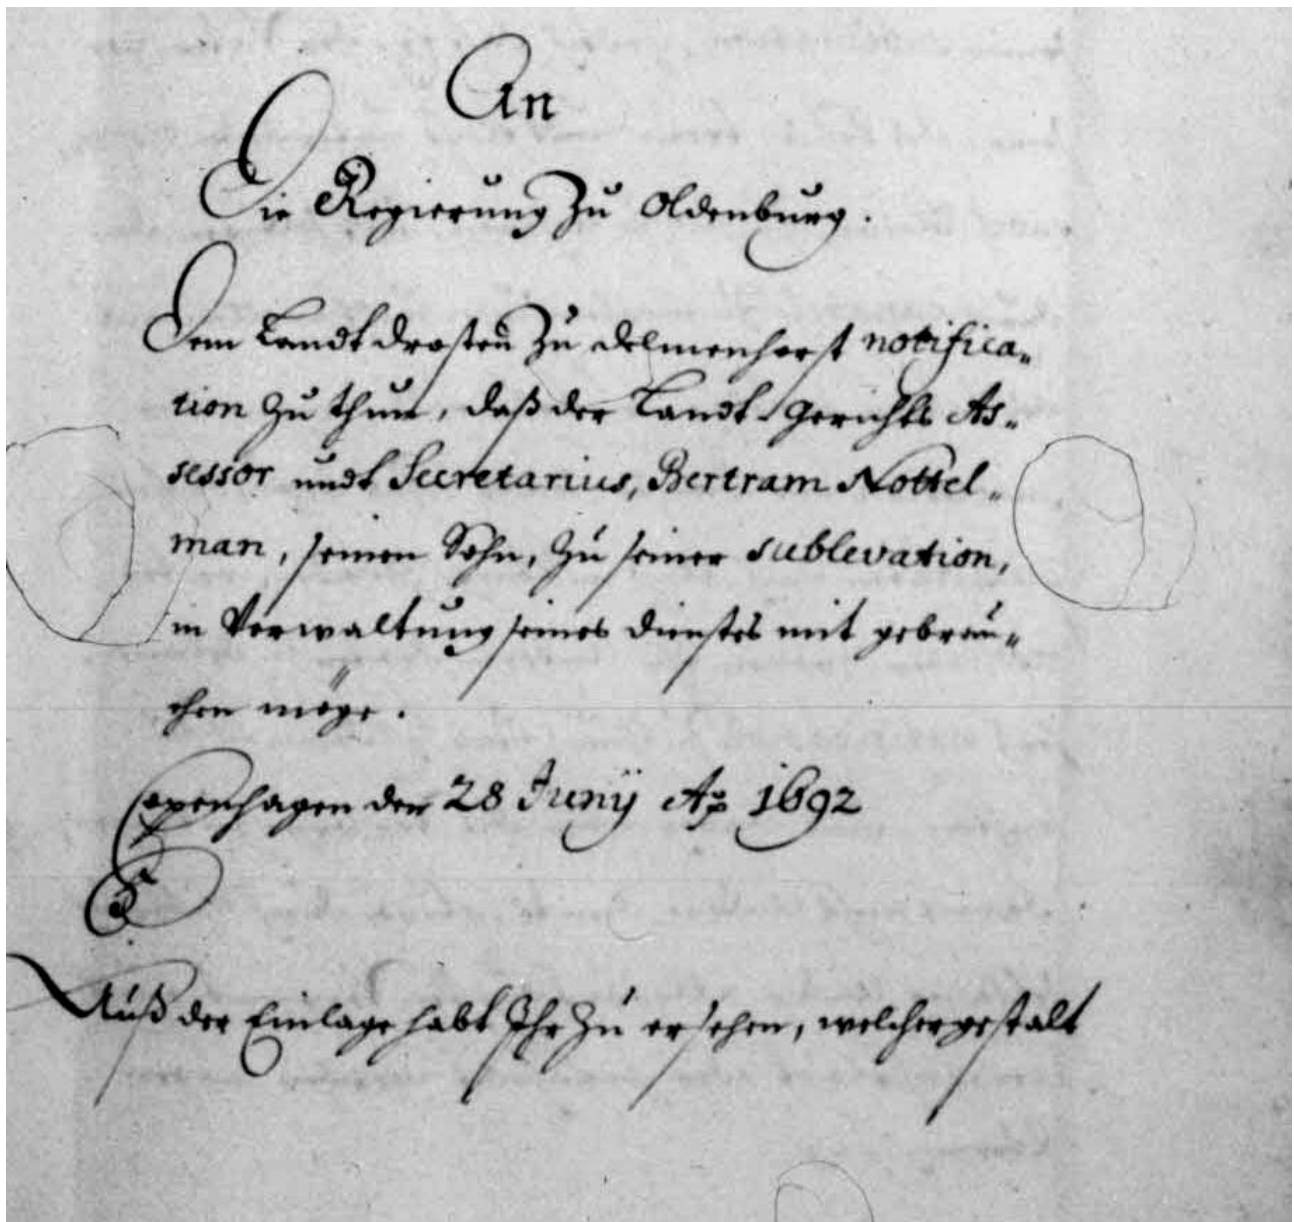 An
Die Regierung Zu Oldenburg.
Dem Landt drosten Zu Delmenhorst notifica„
tion Zu thun, daß der Landt-Gerichts As„
sessor undt Secretarius, Bertram Nottel„
man, seinen Sohn, Zu seiner sublevation,
in Verwaltung seines dienstes mit gebrau„
chen möge.
Copenhagen den 28 Junÿ Ao 1692
Auß der Einlage habt Ihr Zu ersehen, welchergestalt